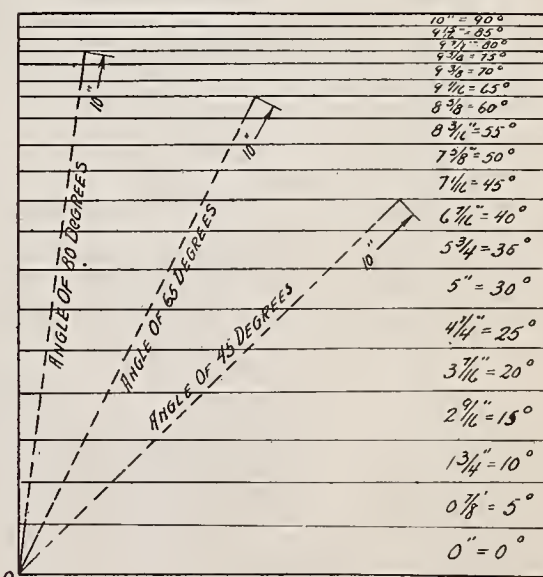 10" = 90°
9 15/16" = 85°
80°
9 5/8 = 75°
9 3/8 = 70°
9 1/16 = 65°
8 5/8 = 60°
8 3/16" = 55°
7 5/8" = 50°
7 1/16 = 45°
6 7/16" = 40°
5 3/4 = 35°
5" = 30°
4 1/4" = 25°
3 7/16" = 20°
2 9/16" = 15°
1 3/4" = 10°
0 7/8' = 5°
0" = 0°
10"
10"
10"
ANGLE OF 80 DEGREES
ANGLE OF 65 DEGREES
ANGLE OF 45 DEGREES